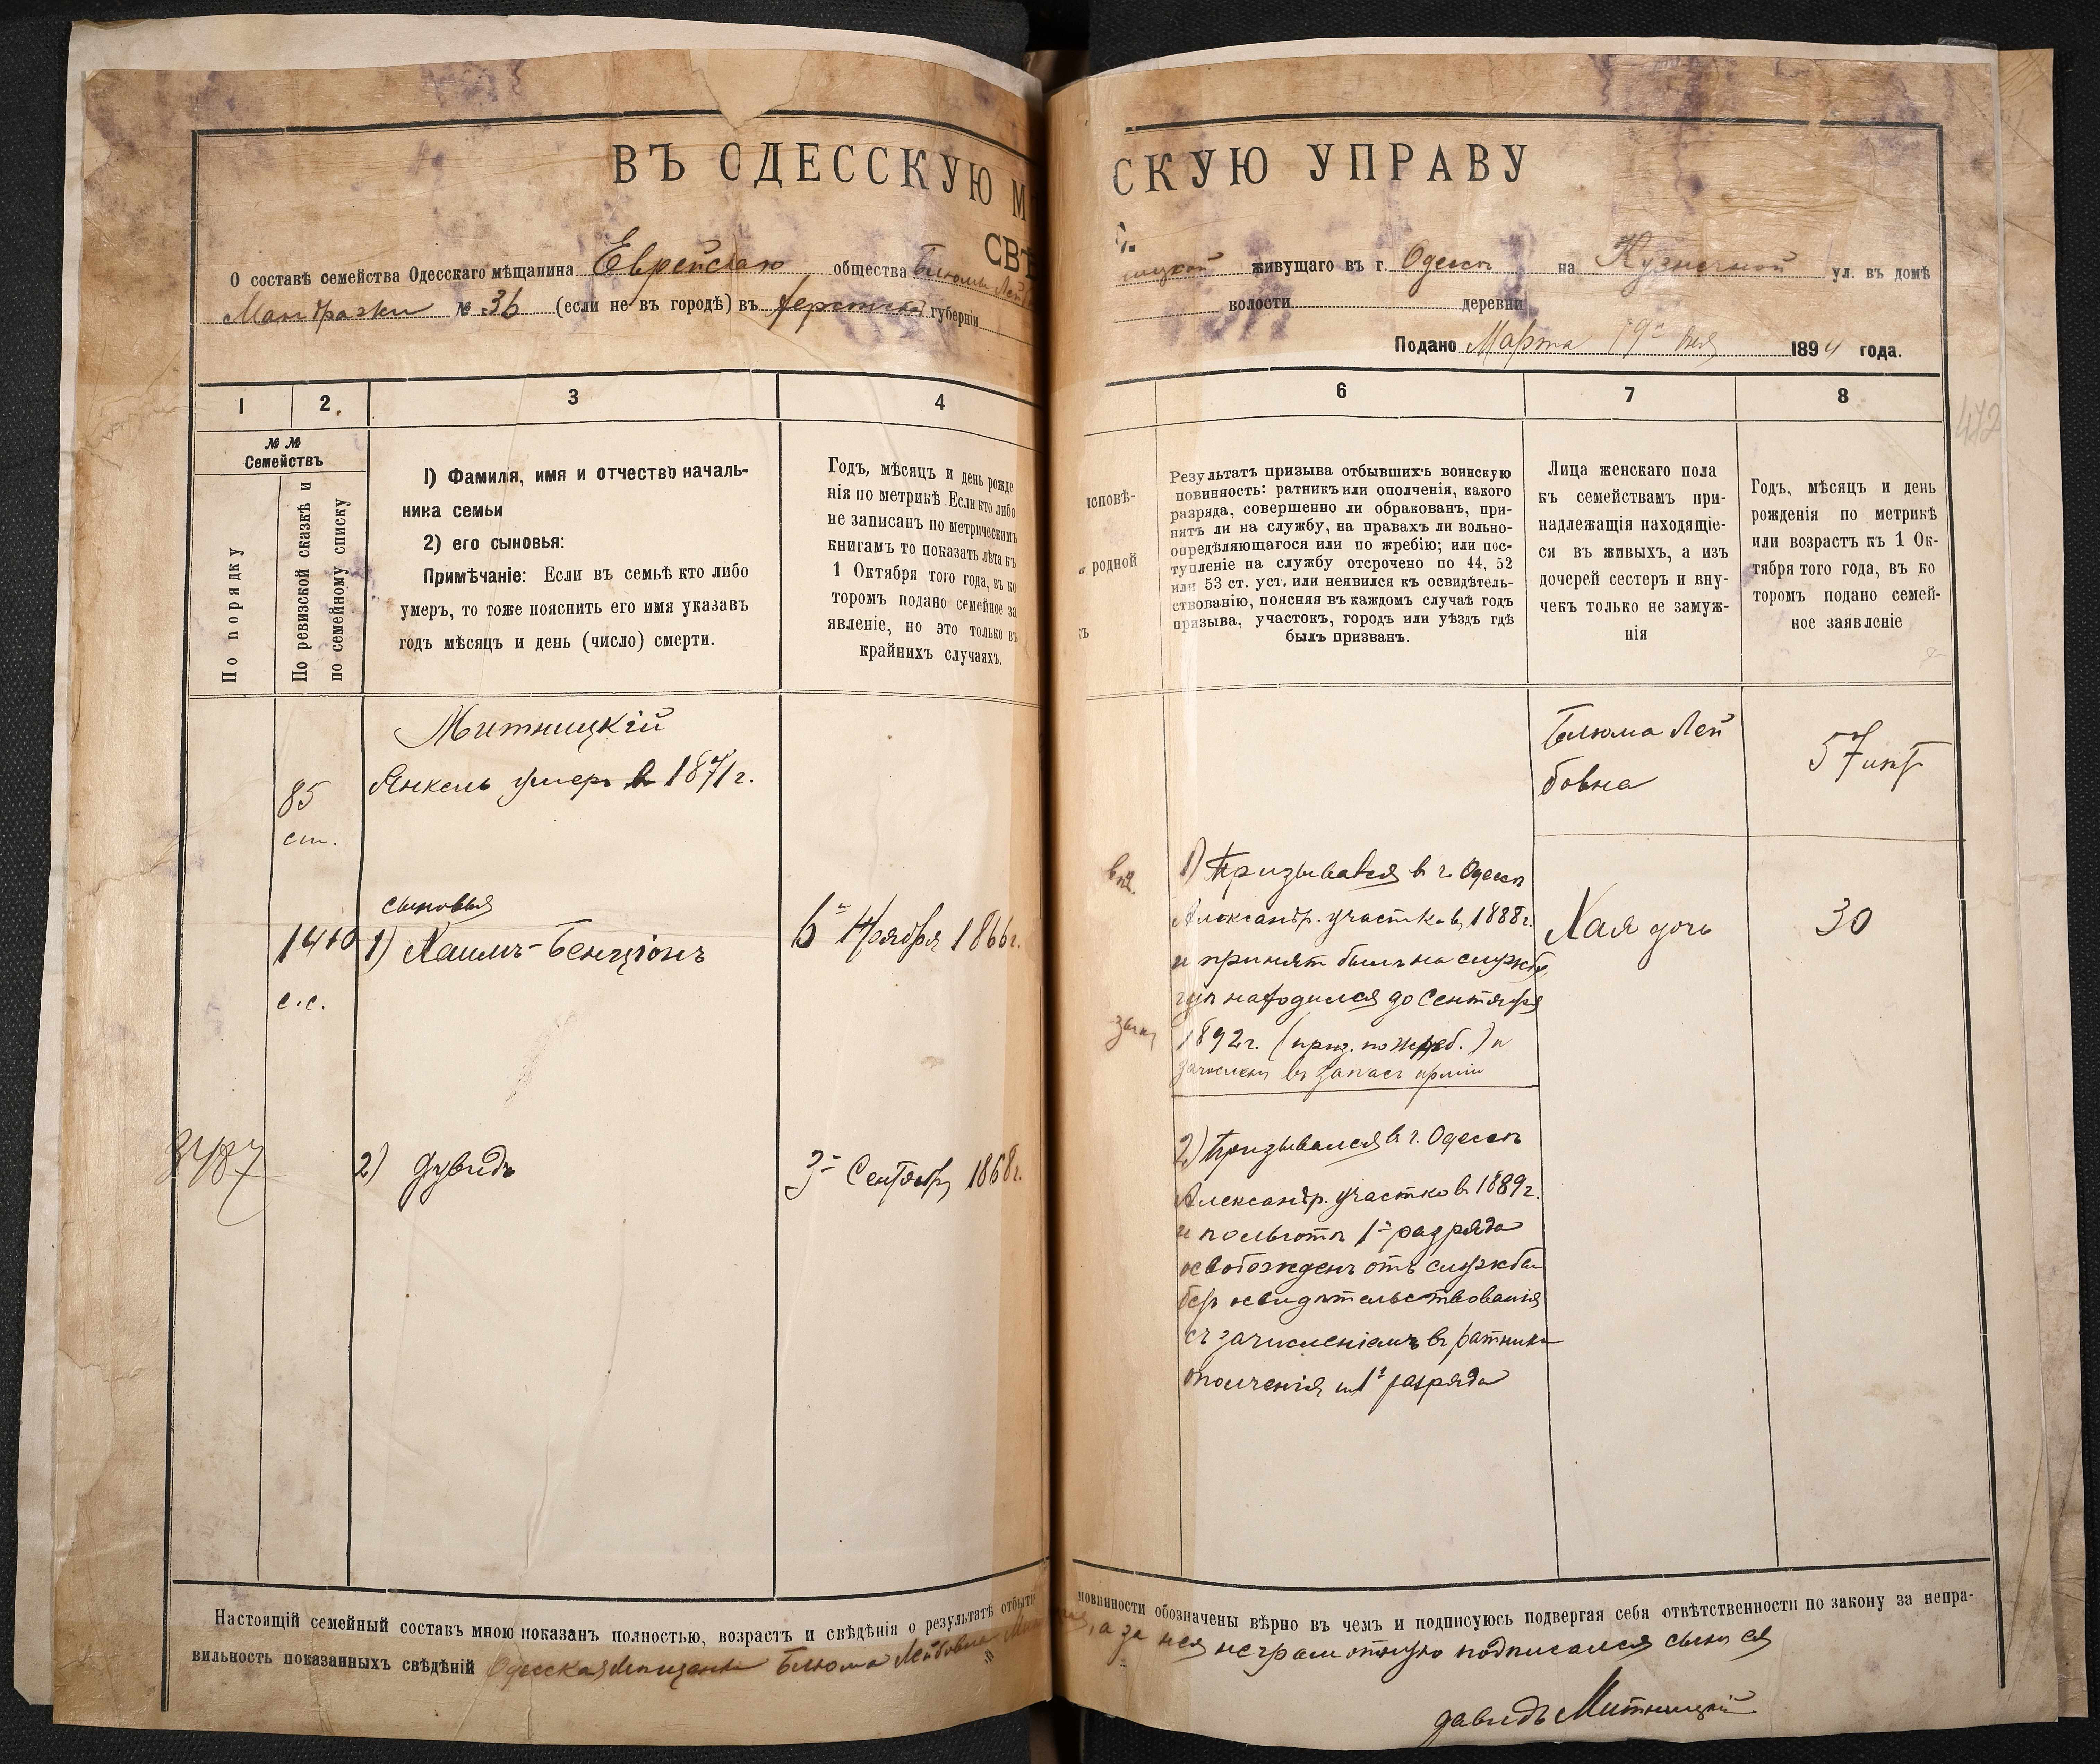 ВЪ ОДЕССКУЮ М
СКУЮ УПРАВУ
СВѢ
О составѣ семейства Одесскаго мѣщанина Еврейскаго общества Блюмы Лей
ницкой живущаго въ г. Одессѣ на Кузнечной ул. въ домѣ
№ 36 (если не въ городѣ) въ Херсонской губерніи
волости деревни
Подано Марта 19го дня 1894 года.
1 2. 3 4
6 7 8
472
№ № Семействъ
По порядку
По ревизской сказкѣ и
по семейному списку
1) Фамиля, имя и отчество началь-
ника семьи
2) его сыновья:
Примѣчаніе: Если въ семьѣ кто либо
умеръ, то тоже пояснить его имя указавъ
годъ мѣсяцъ и день (число) смерти.
Годъ, мѣсяцъ и день рожде
нія по метрикѣ. Если кто либо
не записанъ по метрическимъ
книгамъ то показать лѣта къ
1 Октября того года, въ ко
торомъ подано семейное за
явленіе, но это только въ
крайнихъ случаяхъ.
исповѣ-
родной
ъ
Результатъ призыва отбывшихъ воинскую
повинность: ратникъ или ополченія, какого
разряда, совершенно ли обракованъ, при-
нятъ ли на службу, на правахъ ли вольно-
опредѣляющагося или по жребію; или пос-
тупленіе на службу отсрочено по 44, 52
или 53 ст. уст. или неявился къ освидѣтель-
ствованію, поясняя въ каждомъ случаѣ годъ
призыва, участокъ, городъ или уѣздъ гдѣ
былъ призванъ.
Лица женскаго пола
къ семействамъ при-
надлежащія находящіе-
ся въ живыхъ, а изъ
дочерей сестеръ и вну-
чекъ только не замуж-
нія
Годъ, мѣсяцъ и день
рожденія по метрикѣ
или возрастъ къ 1 Ок-
тября того года, въ ко
торомъ подано семей-
ное заявленіе
Митницкій
85 Янкель умеръ в 1871 г.
ст.
сыновья
1410 1) Хаимъ-Бенціонъ 6го Ноября 1866 г.
с.с.
3487
2) Дувидъ 3го Сентября 1868 г.
1) Призывался в г. Одессѣ
Александр. участком 1888 г.
и принят былъ на службу,
гдѣ находился до Сентября
1892 г. (приз. по жреб.) и
зачислен въ запасъ арміи
2) Призывался в г. Одессѣ
Александр. участком 1889 г.
и по льготѣ 1го разряда
освобожденъ отъ службы
безъ освидѣтельствованія
съ зачисленіемъ въ ратники
ополченія 1го разряда
Блюма Лей
бовна
57 лѣт
Хая дочь 30
Настоящій семейный составъ мною показанъ полностью, возрастъ и свѣдѣнія о результатѣ отбытія
повинности обозначены вѣрно въ чемъ и подписуюсь подвергая себя отвѣтственности по закону за непра-
вильность показанныхъ свѣдѣній Одесская Мѣщанка Блюма Лейбовна
а за нея неграмотную подписался сынъ ея
Давидъ Митницкій